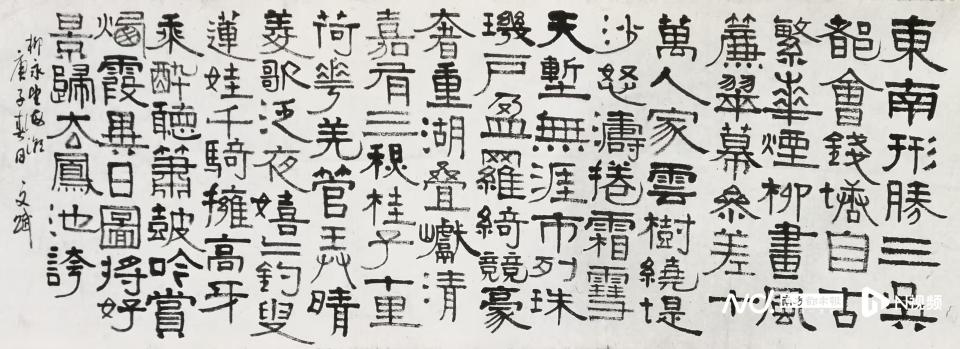 東南形勝三吳
都會錢塘自古
繁華煙柳畫風
簾翠幕參差十
萬人家雲樹繞堤
沙怒濤捲霜雪
天塹無涯市列珠
璣戶盈羅綺競豪
奢重湖疊巘清
嘉有三秋桂子十里
荷花羌管弄晴
菱歌泛夜嬉〻釣叟
蓮娃千騎擁高牙
乘醉聽簫鼓吟賞
煙霞異日圖將好
景歸去鳳池誇
柳永望海潮
庚子春日 文斌
N视频